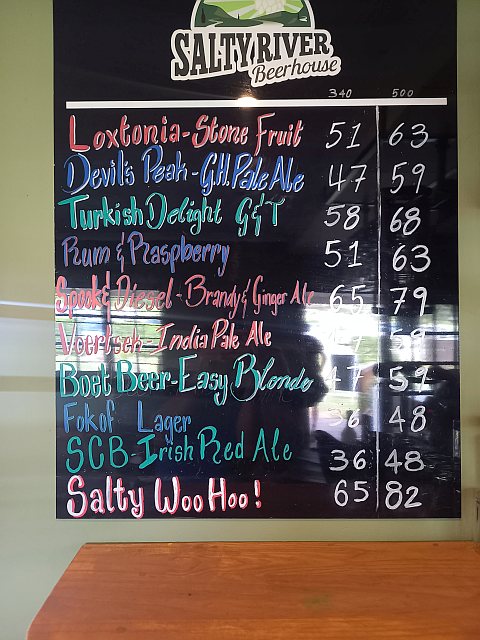 SALTY RIVER
Beerhouse
340 500
Loxtonia - Stone Fruit 51 63
Devil's Peak - G.H. Pale Ale 47 59
Turkish Delight G&T 58 68
Rum & Raspberry 51 63
Spook & Diesel - Brandy & Ginger Ale 65 79
Voertsek - India Pale Ale 47 59
Boet Beer - Easy Blonde 47 59
Fokof Lager 36 48
SCB - Irish Red Ale 36 48
Salty Woo Hoo! 65 82